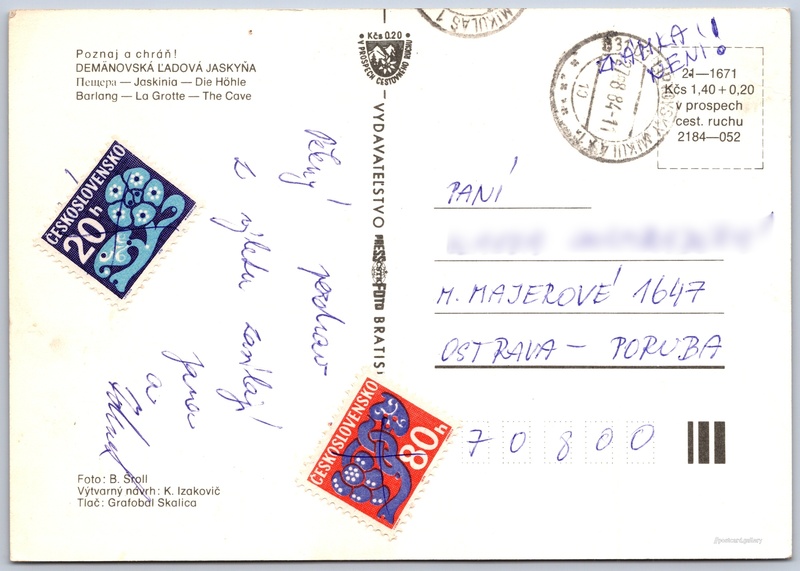 Poznaj a chráň!
DEMÄNOVSKÁ ĽADOVÁ JASKYŇA
Пещера — Jaskinia — Die Höhle
Barlang — La Grotte — The Cave
Kčs 0.20
V PROSPECH CESTOVNÉHO RUCHU
MIKULÁŠ 1
ZNÁMKA!!
NENÍ!
-7.8.84-11
MIKULÁŠ 1
21—1671
Kčs 1,40 + 0,20
v prospech
cest. ruchu
2184—052
VYDAVATEĽSTVO PRESSFOTO BRATIS
ČESKOSLOVENSKO
20h
Pěkný pozdrav
z výletu zasílají
Jana
a
PANÍ
M. MAJEROVÉ 1647
OSTRAVA — PORUBA
70800
ČESKOSLOVENSKO
80h
Foto: B. Šroll
Výtvarný návrh: K. Izakovič
Tlač: Grafobal Skalica
postcart.gallery